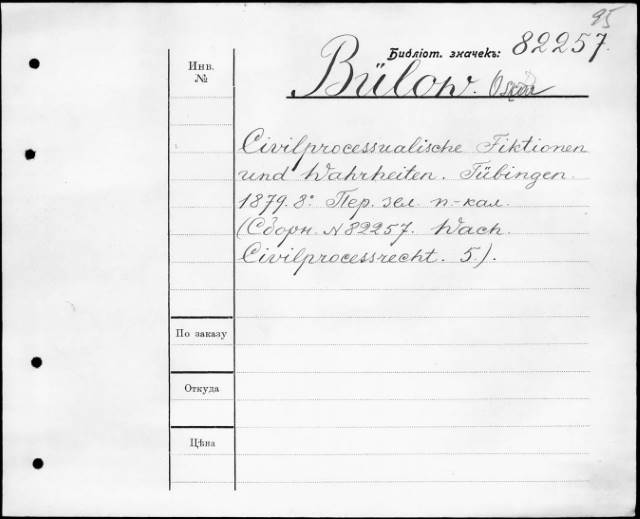 95
Библіот. значекъ: 82257.
Инв.
№
Bülow. Oskar
Civilprocessualische Fiktionen
und Wahrheiten. Tübingen.
1879. 8º. Пер. зел. п.-кал.
(Сборн. № 82257. Wach.
Civilprocessrecht. 5.).
По заказу
Откуда
Цѣна